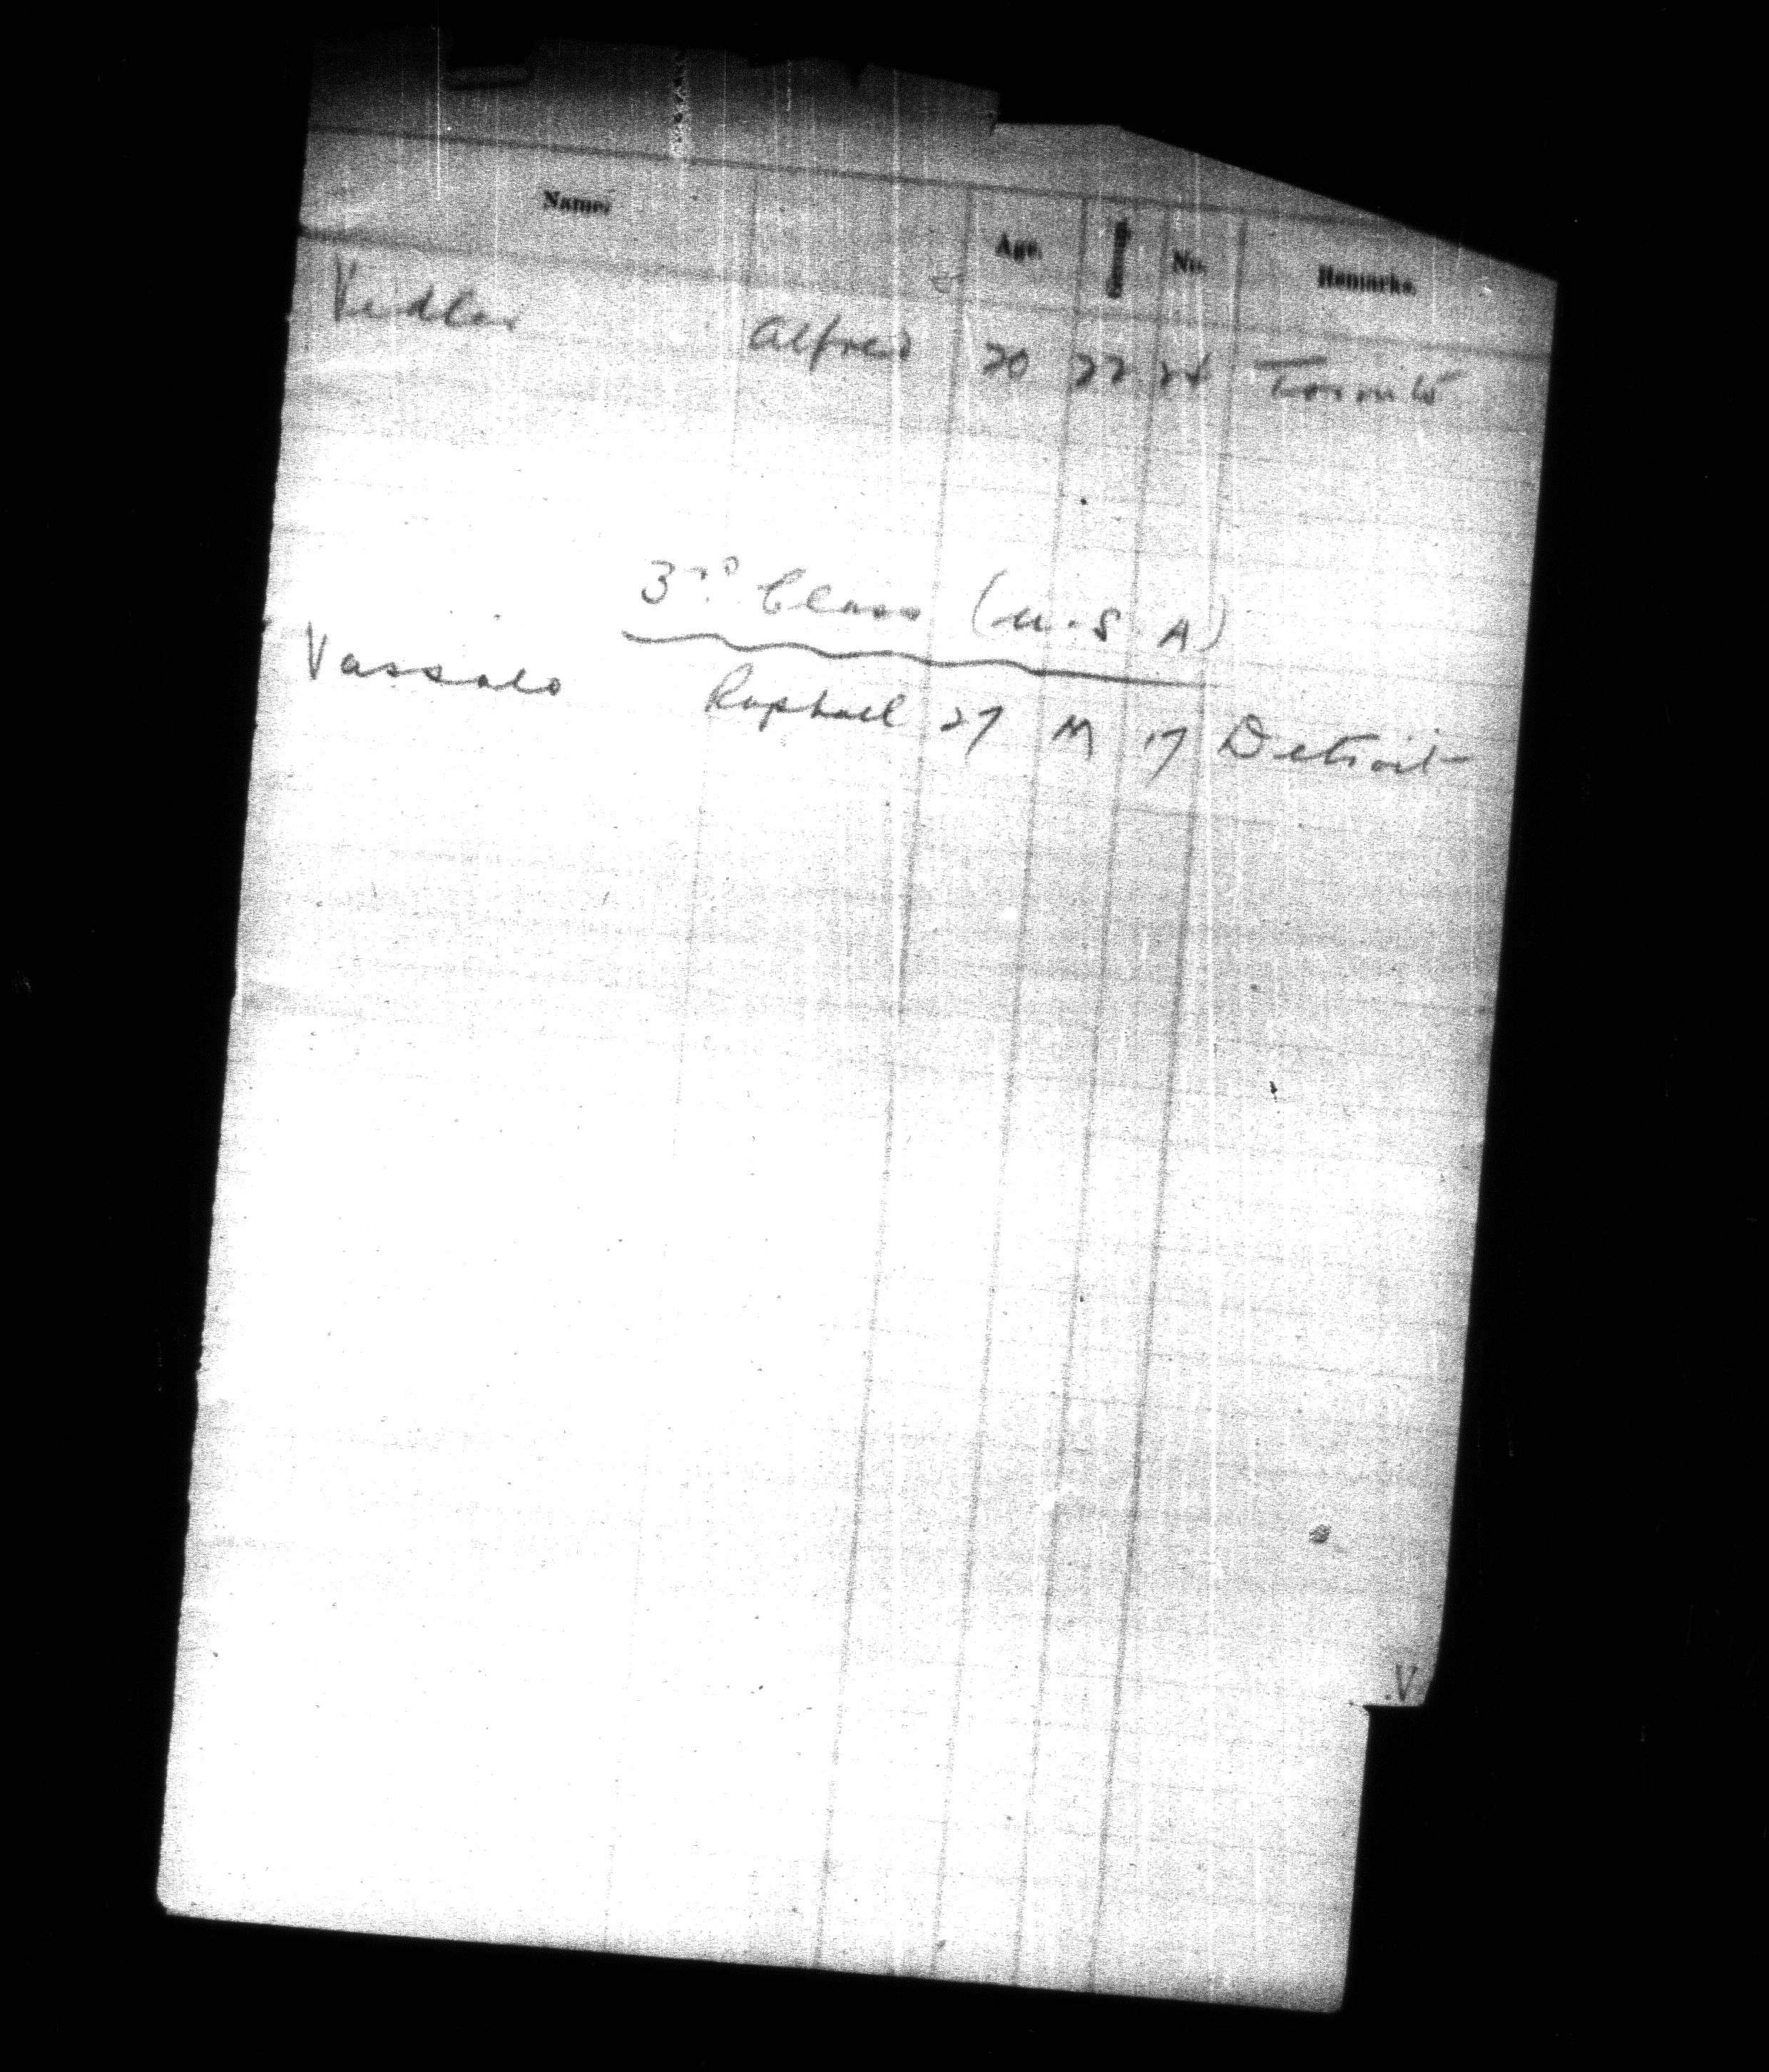 Name. Age. No. Remarks.
Vidler Alfred 20 22 24 Toronto
3rd Class (U.S.A)
Vassalo Raphael 27 M 17 Detroit
V